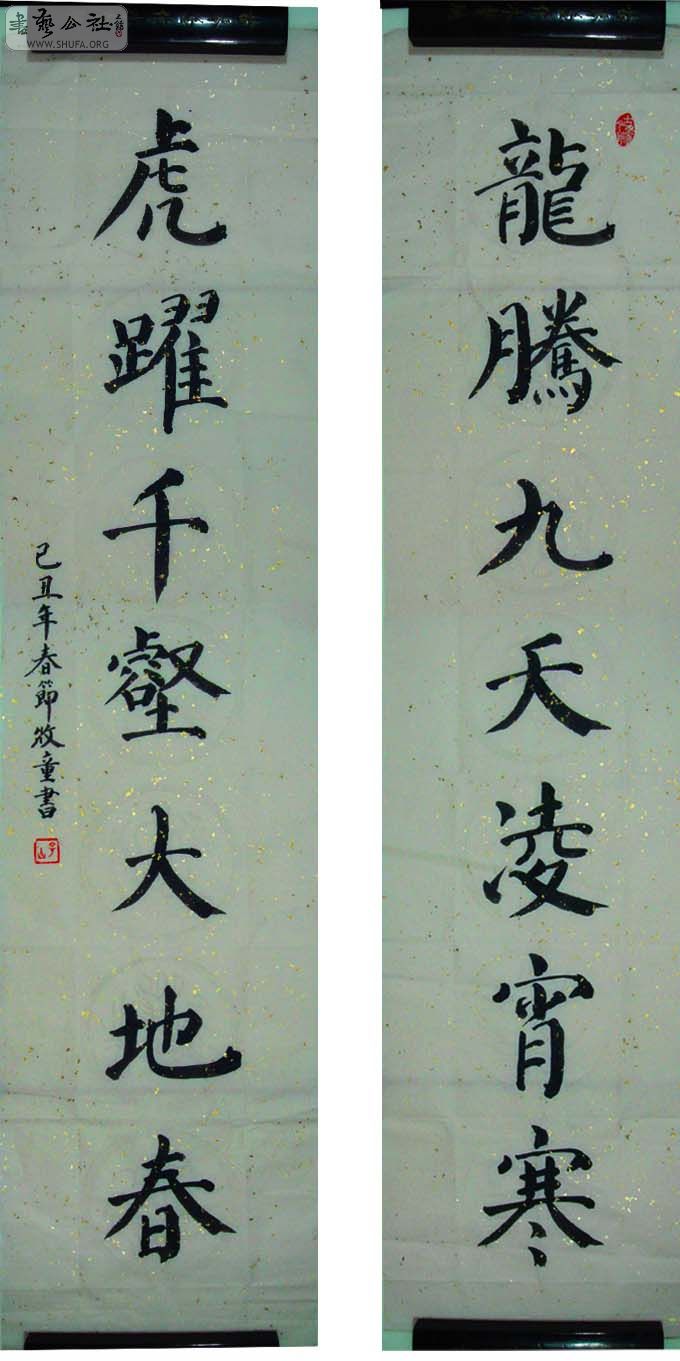 龍騰九天淩宵寒
虎躍千壑大地春
己丑年春節牧童書
書藝公社
WWW.SHUFA.ORG